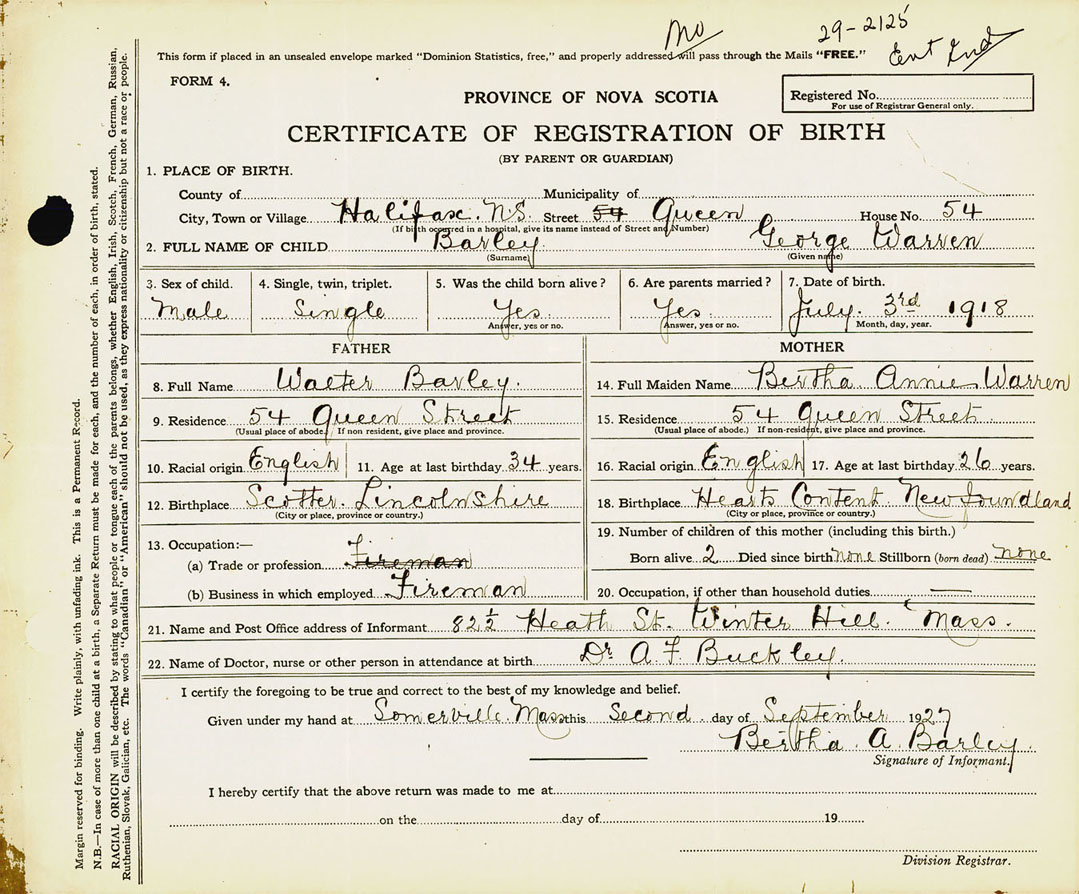 Mo
29-2125
Ent Ind
This form if placed in an unsealed envelope marked "Dominion Statistics, free," and properly addressed will pass through the Mails "FREE."
FORM 4.
Registered No.
For use of Registrar General only.
PROVINCE OF NOVA SCOTIA
CERTIFICATE OF REGISTRATION OF BIRTH
(BY PARENT OR GUARDIAN)
1. PLACE OF BIRTH.
County of Municipality of
City, Town or Village Halifax. N.S. Street 54 Queen House No. 54
(If birth occurred in a hospital, give its name instead of Street and Number)
2. FULL NAME OF CHILD Barley George Warren
(Surname) (Given name)
3. Sex of child. 4. Single, twin, triplet. 5. Was the child born alive? 6. Are parents married? 7. Date of birth.
Male Single Yes Yes July. 3rd 1918
Answer, yes or no. Answer, yes or no. Month, day, year.
FATHER MOTHER
8. Full Name Walter Barley. 14. Full Maiden Name Bertha Annie Warren
9. Residence 54 Queen Street 15. Residence 54 Queen Street
(Usual place of abode. If non resident, give place and province. (Usual place of abode.) If non-resident, give place and province.
10. Racial origin English 11. Age at last birthday 34 years. 16. Racial origin English 17. Age at last birthday 26 years.
12. Birthplace Scotter. Lincolnshire 18. Birthplace Hearts Content Newfoundland
(City or place, province or country.) (City or place, province or country.)
13. Occupation:— 19. Number of children of this mother (including this birth.)
(a) Trade or profession Fireman Born alive 2 Died since birth none Stillborn (born dead) none
(b) Business in which employed Fireman 20. Occupation, if other than household duties —
21. Name and Post Office address of Informant 82½ Heath St. Winter Hill. Mass.
22. Name of Doctor, nurse or other person in attendance at birth Dr A. F. Buckley.
I certify the foregoing to be true and correct to the best of my knowledge and belief.
Given under my hand at Somerville. Mass this Second day of September 1927
Bertha. A. Barley.
Signature of Informant.
I hereby certify that the above return was made to me at
on the day of 19
Division Registrar.
Margin reserved for binding. Write plainly, with unfading ink. This is a Permanent Record.
N.B.—In case of more than one child at a birth, a Separate Return must be made for each, and the number of each, in order of birth, stated.
RACIAL ORIGIN will be described by stating to what people or tongue each of the parents belongs, whether English, Irish, Scotch, French, German, Russian,
Ruthenian, Slovak, Galician, etc. The words "Canadian" or "American" should not be used, as they express nationality or citizenship but not a race or people.